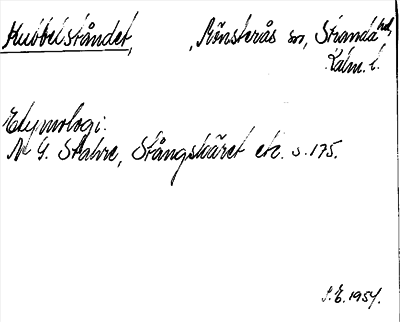 Hubbelståndet, Mönsterås sn, Stranda hd,
Kalm. l.
Etymologi:
N G. Stahre, Stångskäret etc. s. 175.
S.E. 1957.